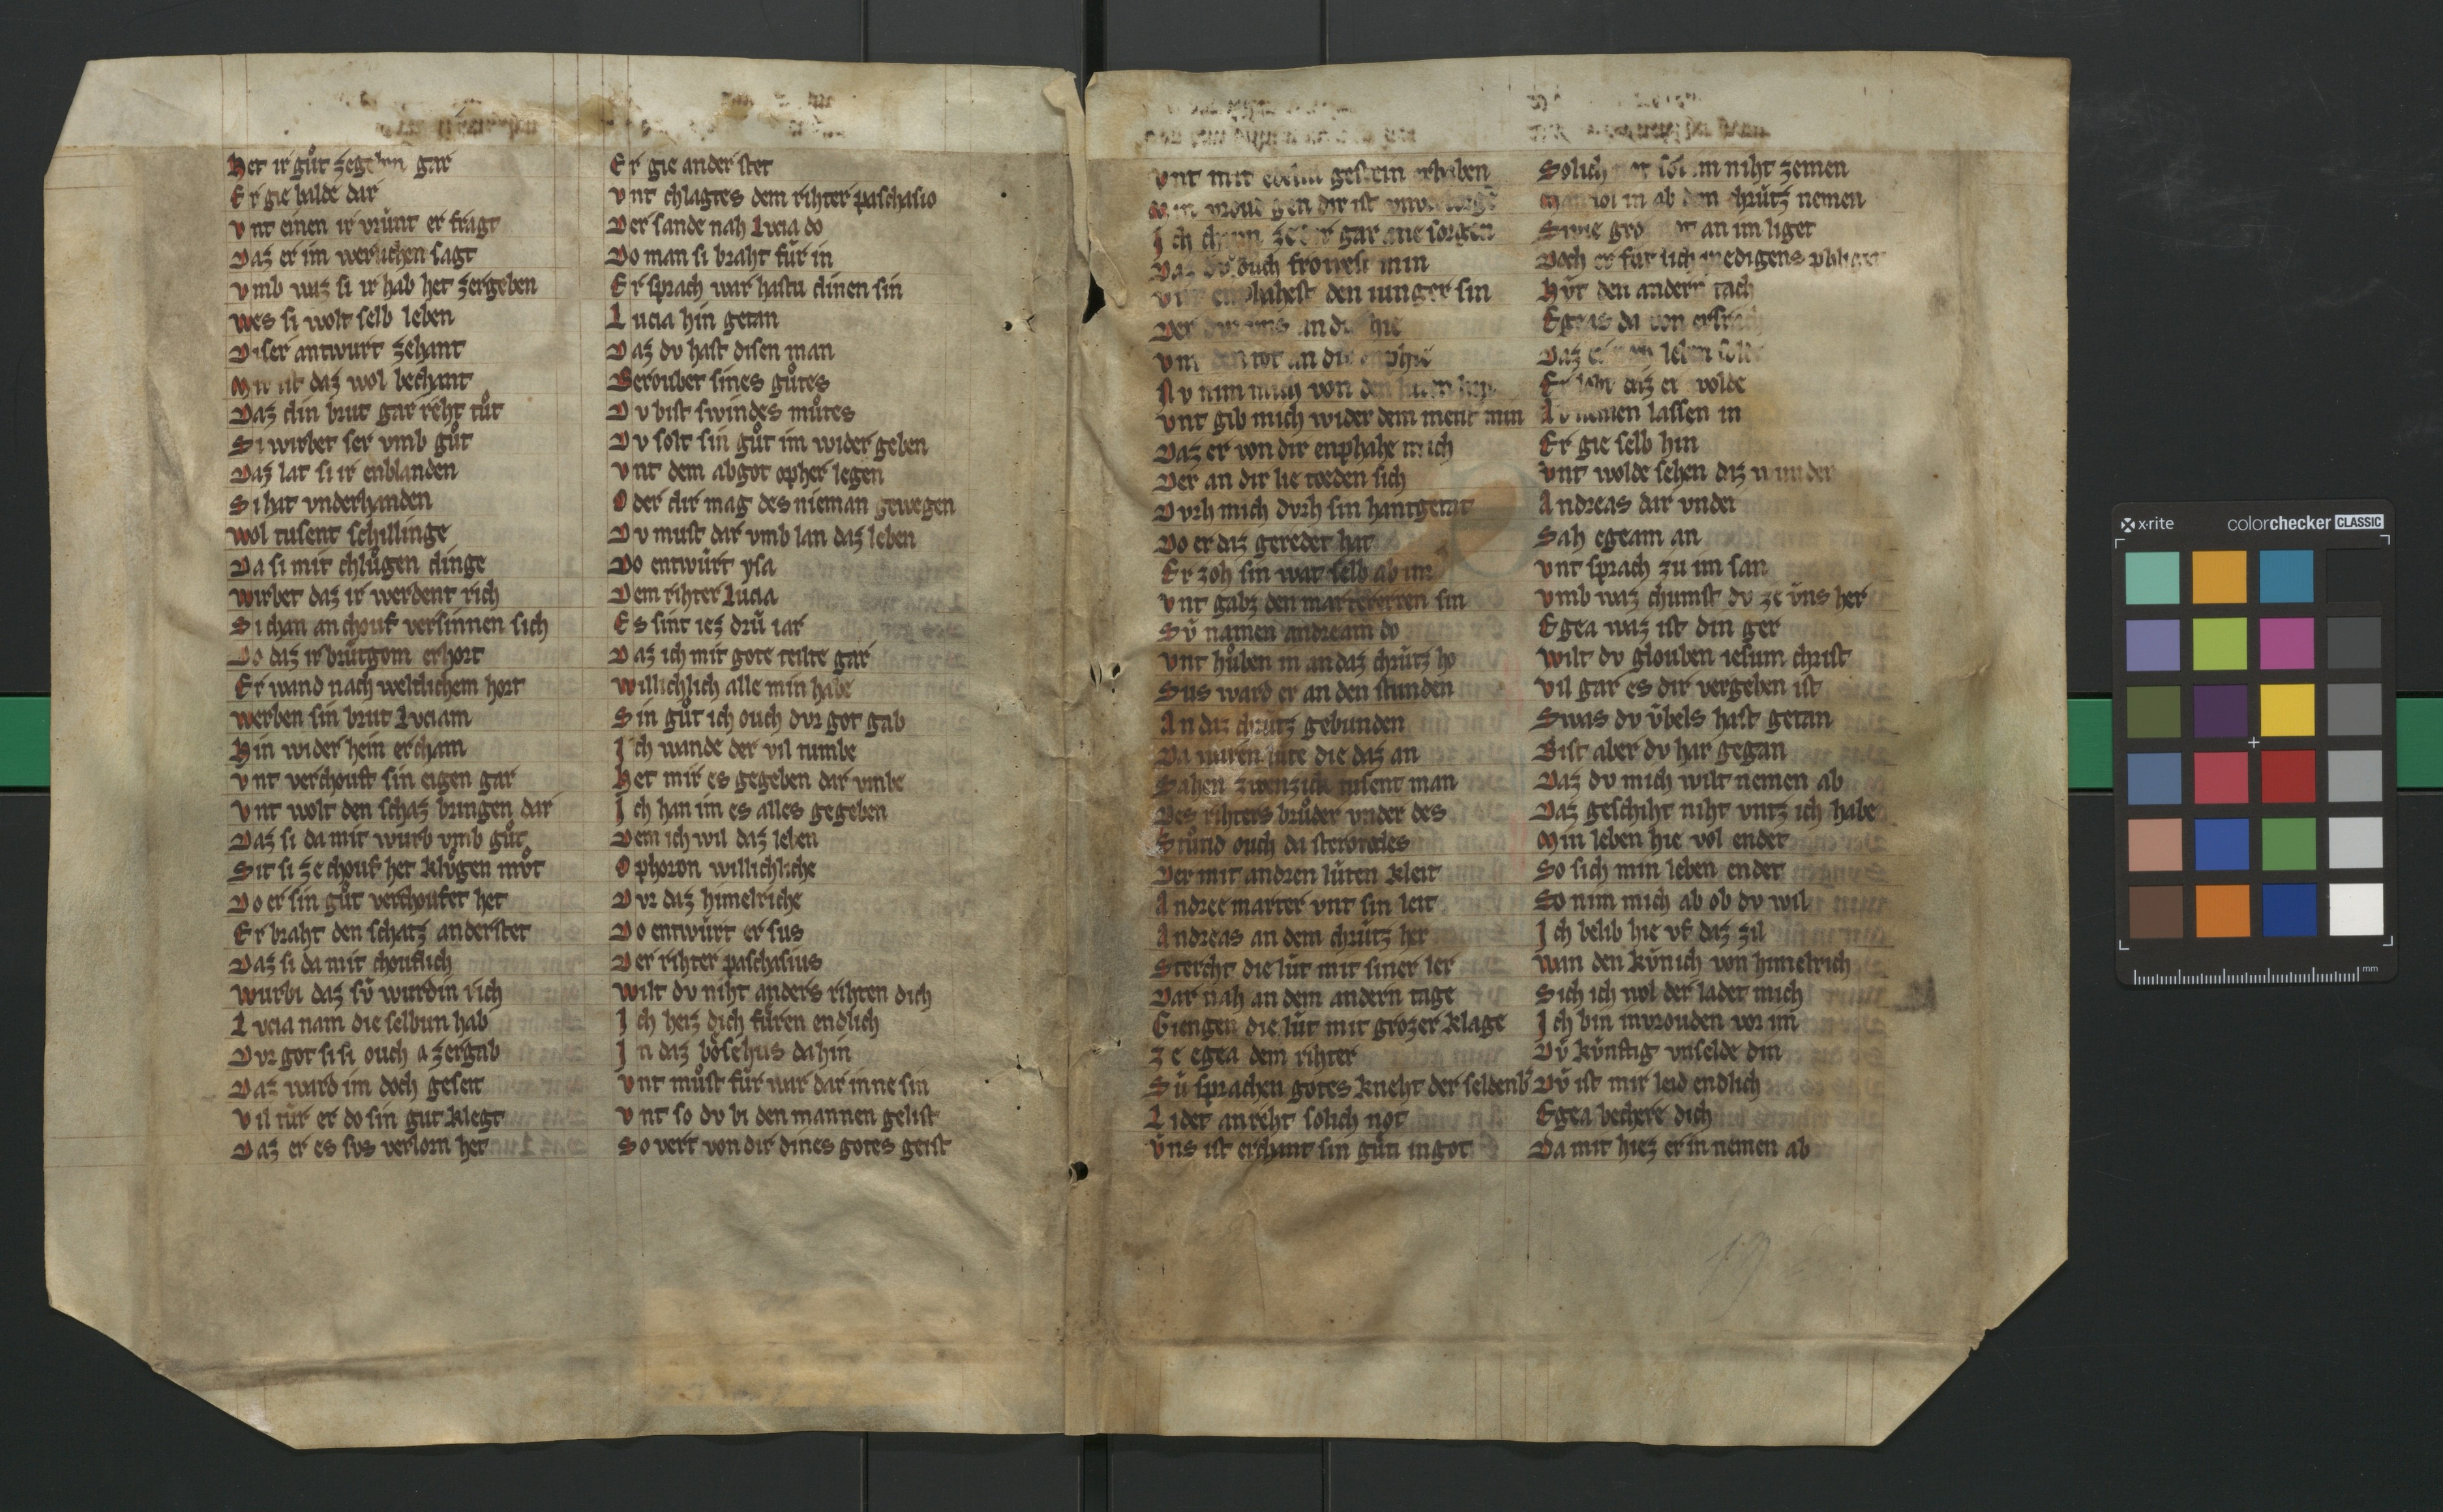 Het ir guͦt zegeben gar
Er gie balde dar
vnt einen ir vruͤnt er fragt
Daz er im werlichen sagt
vmb waz si ir hab het zergeben
wes si wolt selb leben
Diser antwurt zehant
Mir ist daz wol bechant
Daz din brut gar reht tuͦt
Si wirbet ser vmb guͦt
Daz lat si ir enblanden
Si hat vnderhanden
wol tusent schillinge
Da si mit chluͦgen dinge
wirbet daz ir werdent rich
Si chan an chouf versinnen sich
Do daz ir bruͤtgom erhort
Er wand nach weltlichem hort
werben sin brut Luciam
Hin wider hein er cham
vnt verchouft sin eigen gar
vnt wolt den schaz bringen dar
Daz si da mit wurb vmb guͦt
Sit si ze chouf het kluͦgen muͦt
Do er sin guͦt verchoufet het
Er braht den schatz anderstet
Daz si da mit chouflich
wurbi daz sv̈ wurdin rich
Lvcia nam die selbun hab
Dvr got si si ouch a zergab
Daz ward im doch geseit
vil tuͤr er do sin gut klegt
Daz er es svs verlorn het
Er gie ander stet
vnt chlagtes dem rihter paschasio
Der sande nah Lvcia do
Do man si braht fuͤr in
Er sprach war hastu dinen sin
Lucia hin getan
Daz dv hast disen man
Beroubet sines guͦtes
Dv bist swindes muͦtes
Dv solt sin guͦt im wider geben
vnt dem abgot opher legen
Oder dir mag des nieman gewegen
Dv must dar vmb lan daz leben
Do entwuͤrt ysa
Dem rihter Lucia
Es sint iez druͤ iar
Daz ich mit gote teilte gar
willichlich alle min habe
Sin guͦt ich ouch dvr got gab
Ich wande der vil tumbe
Het mir es gegeben dar vmbe
Ich han im es alles gegeben
Dem ich wil daz leben
Ophoron willichliche
Dvr daz himelriche
Do entwuͤrt er sus
Der rihter paschasius
wilt dv niht anders rihten dich
Ich heiz dich fuͤren endlich
In daz boͤsehus dahin
vnt muͦst fuͤr war dar inne sin
vnt so dv bi den mannen gelist
So vert von dir dines gotes geist
vnt mit edelm gestein erhaben
Min vroud gen dir ist
Ich gar ane sorgen
Daz dv ouch frowest min
vnt enphahest den iunger sin
Der an
vnt den tot an dir enphie
Nv nim mich von den
vnt gib mich wider dem meist min
Daz er von dir enphahe mich
Der an dir lie toeden sich
Dvrh mich dvrh sin hantgetat
Do er daz geredet hat
Er zoh sin wat selb ab im
vnt gabz den martereren sin
Sv̈ namen andream do
vnt huͦben in an daz chruͤtz ho
Sus ward er an den stunden
An daz chrutz gebunden
Da waren lute die daz an
Sahen zwenzick tusent man
Des rihters bruͦder vnder des
Stuͦnd ouch da
Der mit andren luͤten kleit
Andree marter vnt sin leit
Andreas an dem chruͤtz her
Stercht die luͤt mit siner ler
Dar nah an dem andern tage
Giengen die luͤt mit grozer klage
Ze egea dem rihter
Sv̈ sprachen gotes kneht der
Lidet an reht solich not
v̈ns ist erchant sin guͤti in got
Solich niht zemen
Man sol in ab dem chruͤtz nemen
Sine an im liget
Doch er fuͤr sich predigens
Hv̈t den andern tach
Egeas da von
Daz er leben
Er daz er wolde
lassen in
Er gie selb hin
vnt wolde sehen daz wunder
Andreas dar vnder
Sah egeam an
vnt sprach zu im san
vmb waz chumst dv ze v̈ns her
Egea waz ist din ger
wilt dv glouben iesum christ
vil gar es dir vergeben ist
Swas dv v̈bels hast getan
Bist aber dv har gegan
Daz dv mich wilt nemen ab
Daz geschiht niht vntz ich habe
Min leben hie vol endet
So sich min leben endet
So nim mich ab ob dv wil
Ich belib hie vf daz zil
wan den kv̈nich von himelrich
Sich ich wol der ladet mich
Ich bin in vrouden vor im
Dv̈ kv̈nftig vnselde din
Dv̈ ist mir leid endlich
Egea bechere dich
Da mit hiez er in nemen ab